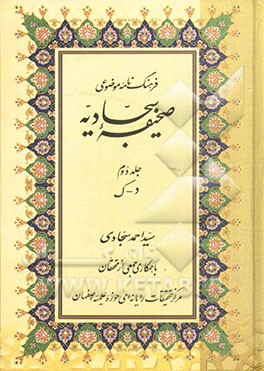 فرهنگ نامه موضوعی
صحیفه سجادیه
جلد دوم
د - ک
سید احمد سجادی
با همکاری جمعی از محققان
مرکز تحقیقات رایانه‌ای حوزه علمیه اصفهان